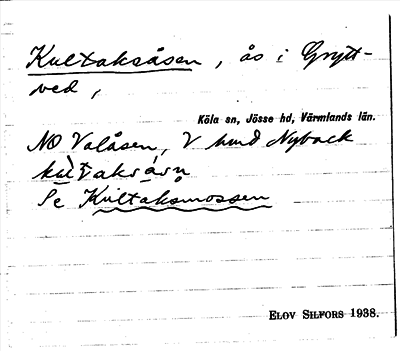 Kultaksåsen, ås i Grytt-
ved,
Köla sn, Jösse hd, Värmlands län.
NO Valåsen, V hmd Nyback
kultaksåsn
Se Kultaksmossen
ELOV SILFORS 1938.